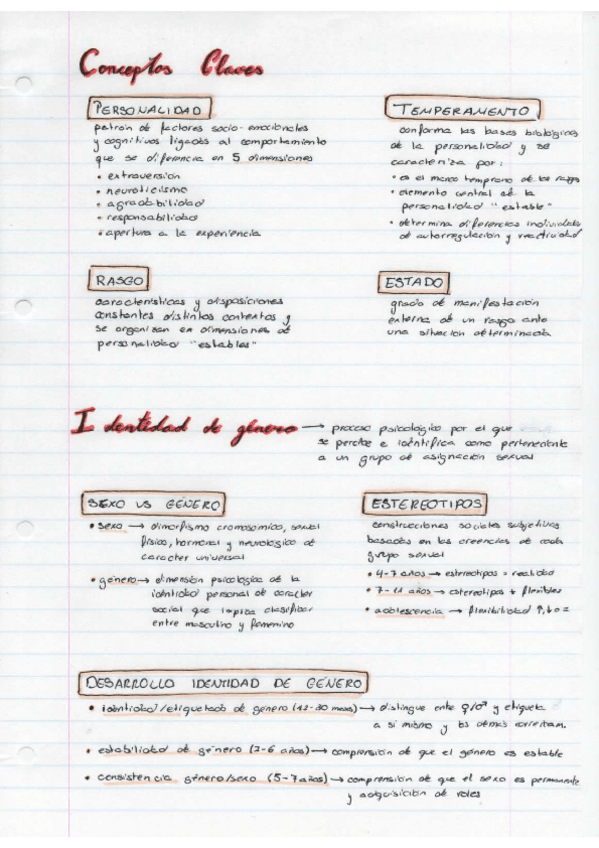 Conceptos Claves
PERSONALIDAD
patrón de factores socio-emocionales
y cognitivos ligados al comportamiento
que se diferencia en 5 dimensiones
• extraversión
• neuroticismo
• agradabilidad
• responsabilidad
• apertura a la experiencia
TEMPERAMENTO
conforma las bases biológicas
de la personalidad y se
caracteriza por:
• es el marco temprano de los rasgos
• elemento central de la
personalidad "estable"
• determina diferencias individuales
de autorregulación y reactividad
RASGO
características y disposiciones
constantes distintos contextos y
se organizan en dimensiones de
personalidad "estables"
ESTADO
grado de manifestación
externa de un rasgo ante
una situación determinada
Identidad de género → proceso psicológico por el que
se percibe e identifica como perteneciente
a un grupo de asignación sexual
SEXO VS GÉNERO
• sexo → dimorfismo cromosómico, sexual
físico, hormonal y neurológico de
carácter universal
• género → dimensión psicológica de la
identidad personal de carácter
social que implica clasificar
entre masculino y femenino
ESTEREOTIPOS
construcciones sociales subjetivas
basadas en las creencias de cada
grupo sexual
• 4-7 años → estereotipos = realidad
• 7-11 años → estereotipos + flexibles
• adolescencia → flexibilidad ↑, ↓ o =
DESARROLLO IDENTIDAD DE GÉNERO
• identidad/etiquetado de género → distingue ente ♀/♂ y etiqueta
a sí mismo y los demás correctam.
• estabilidad de género (2-6 años) → comprensión de que el género es estable
• consistencia género/sexo (5-7 años) → comprensión de que el sexo es permanente
y adquisición de roles